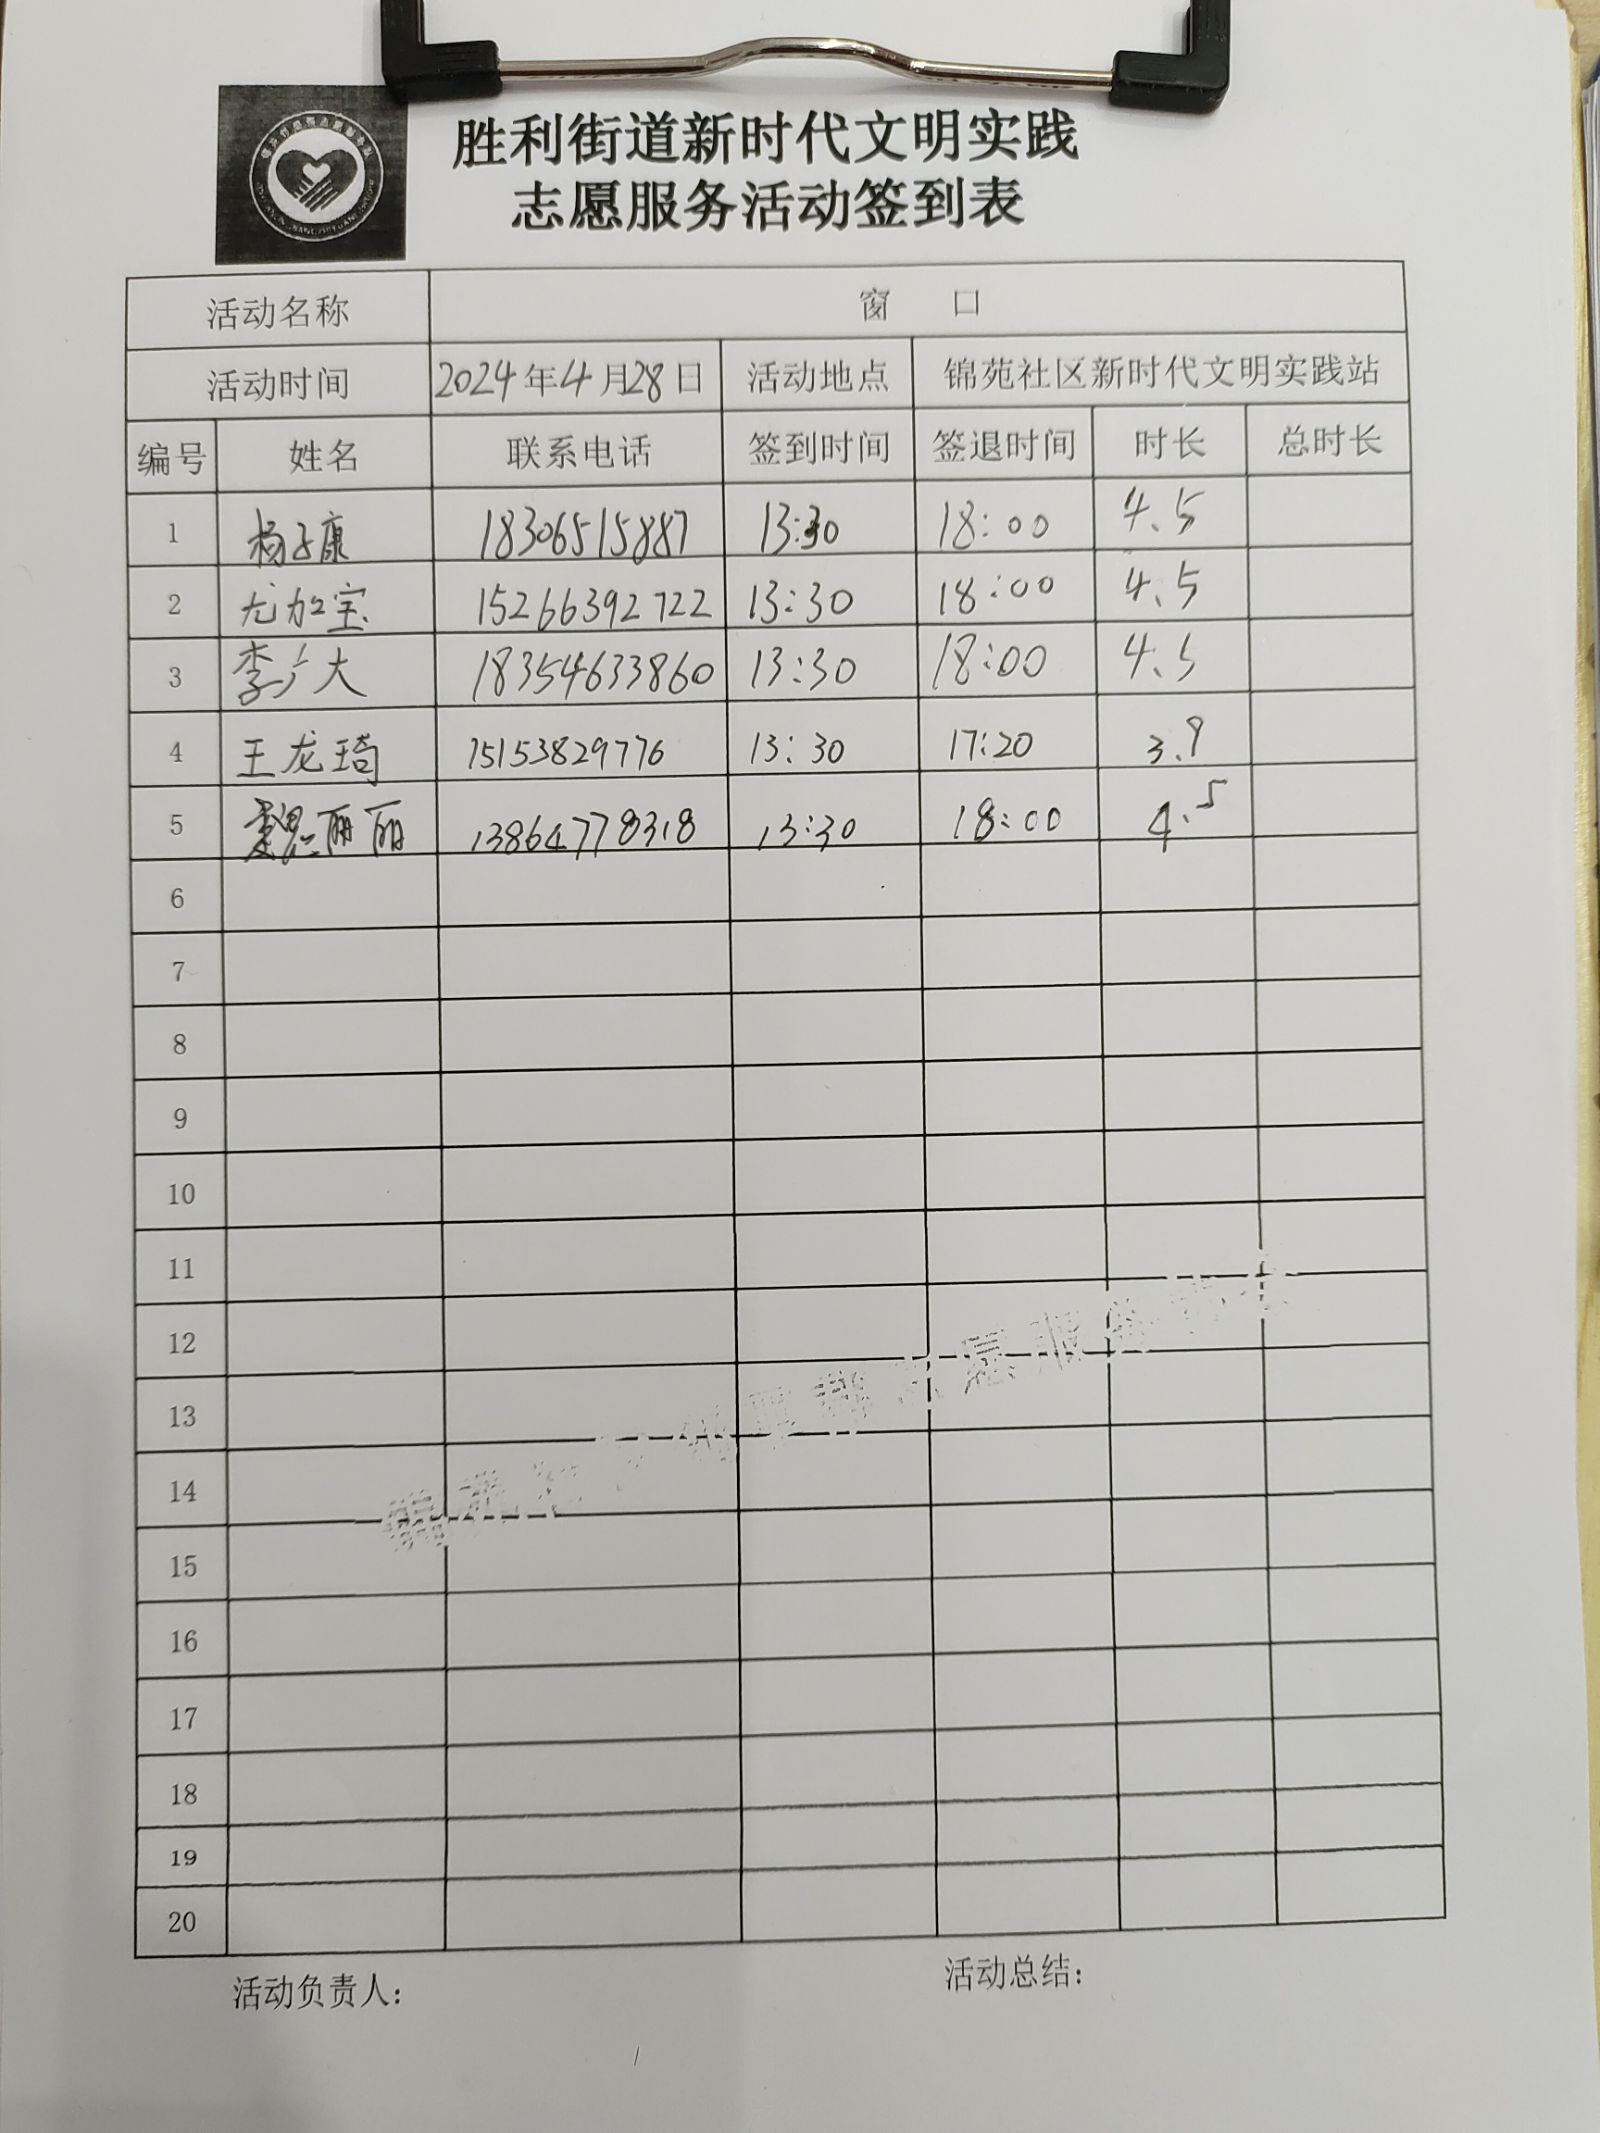 胜利街道新时代文明实践
志愿服务活动签到表
活动名称 窗 口
活动时间 2024年4月28日 活动地点 锦苑社区新时代文明实践站
编号 姓名 联系电话 签到时间 签退时间 时长 总时长
1 杨子康 18306515887 13:30 18:00 4.5
2 尤加宝 15266392722 13:30 18:00 4.5
3 李广大 18354633860 13:30 18:00 4.5
4 王龙琦 15153829776 13:30 17:20 3.9
5 魏丽丽 13864778318 13:30 18:00 4.5
6
7
8
9
10
11
12
13
14
15
16
17
18
19
20
活动负责人: 活动总结: